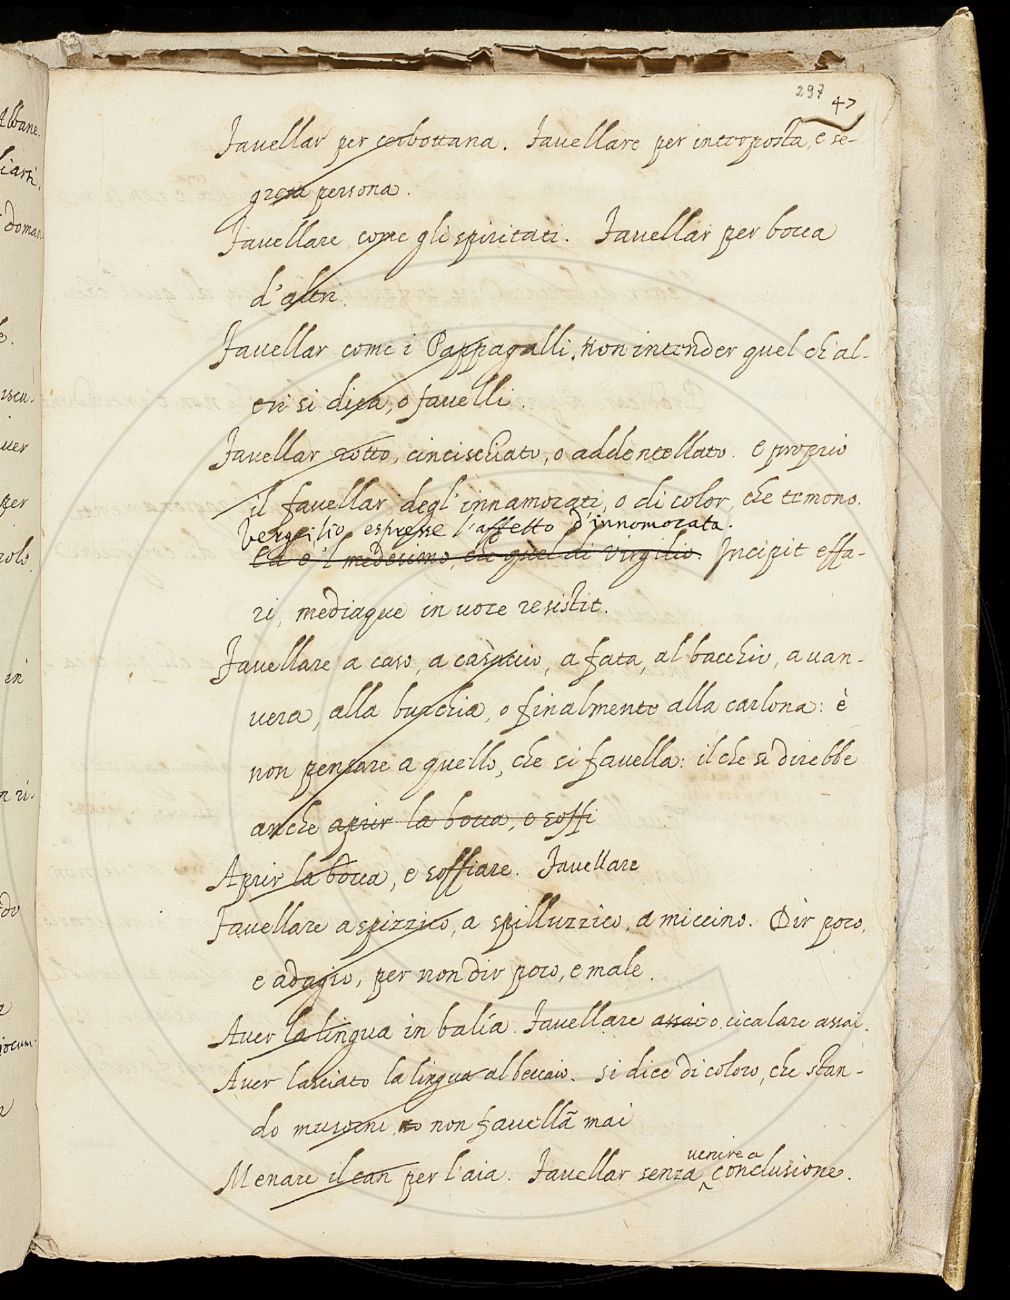 297
47
Favellar per cerbottana. Favellare per interposta, e se-
greta persona.
Favellare come gli spiritati. Favellar per bocca
d'altri.
Favellar come i Pappagalli, non intender quel ch'al-
tri si dica, o favelli.
Favellar rotto, cincischiato, o addentellato. e proprio
il favellar degl'innamorati, o di color, che temono.
Vergilio espresse l'affetto d'innomorata.
Ed è 'l medesimo, ch quel di Virgilio. Incipit effa-
ri, mediaque in voce resistit.
Favellare a caso, a casaccio, a fata, al bacchio, a van-
vera, alla burchia, o finalmente alla carlona: è
non pensare a quello, che si favella: il che si direbbe
anche aprir la bocca, e soffi
Aprir la bocca, e soffiare. Favellare
Favellare a spizzico, a spilluzzico, a miccino. Dir poco,
e adagio, per non dir poco, e male.
Aver la lingua in balía. Favellare assai o cicalare assai.
Aver lasciato la lingua al beccaio. si dice di coloro, che stan-
do musorni non favellā mai
venire a
Menare il can per l'aia. Favellar senza conclusione.
Albane.
iarti,
doman
e.
uer
per
in
n ri-